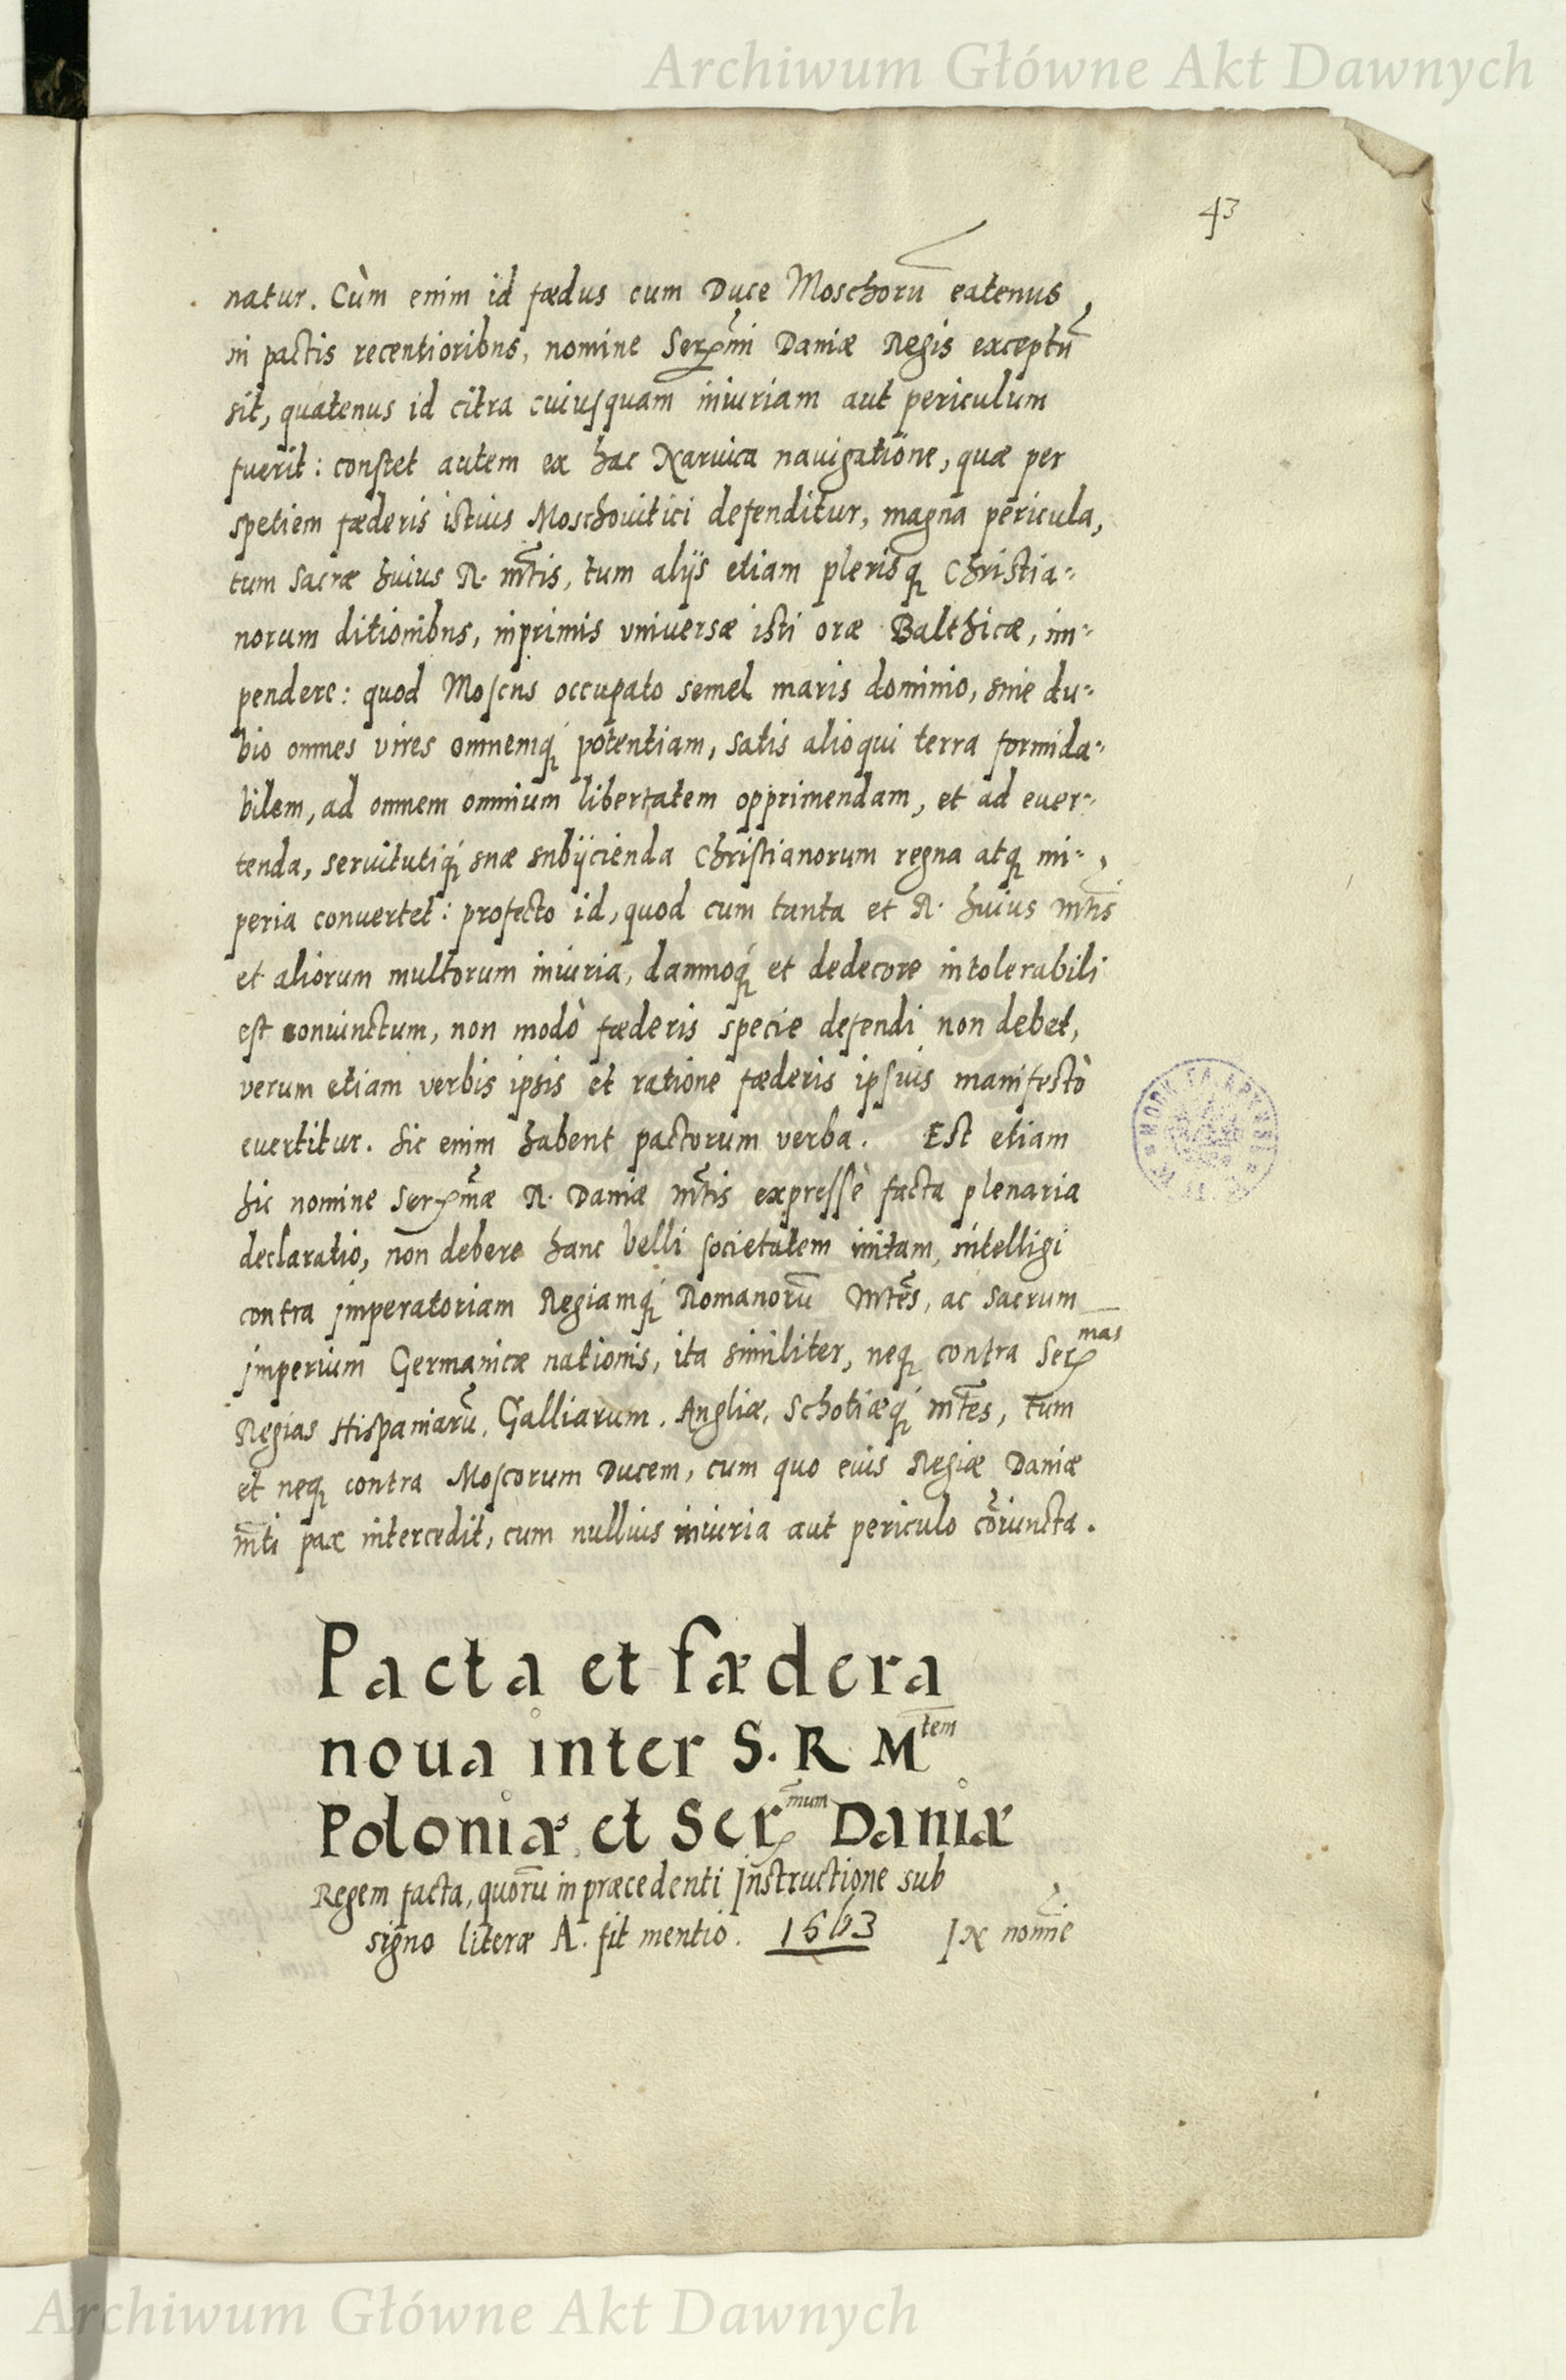 Archiwum Główne Akt Dawnych
43
natur. Cùm enim id fædus cum Duce Moschorū eatenus
in pactis recentioribus, nomine Serꝑm̃i Daniæ Regis exceptũ
sit, quatenus id citra cuiusquam iniuriam aut periculum
fuerit: constet autem ex hac Narvica nauigatione, quæ per
spetiem fæderis istius Moschouitici defenditur, magna pericula,
tum Sacræ huius R. Mt̃is, tum alijs etiam plerisq Christia-
norum ditionibus, inprimis vniuersæ isti oræ Balthicæ, im-
pendere: quod Moscus occupato semel maris dominio, sine du-
bio omnes vires omnemq́ potentiam, satis alioqui terra formida-
bilem, ad omnem omnium libertatem opprimendam, et ad euer-
tenda, servitutiq́ suæ subijcienda Christianorum regna atq im-
peria convertet: profecto id, quod cum tanta et R. huius Mt̃is
et aliorum multorum iniuria, damnoq́ et dedecore intolerabili
est conuinctum, non modò fæderis specie defendi non debet,
verum etiam verbis ipsis et ratione fæderis ipsius manifestò
evertitur. Sic enim habent pactorum verba. Est etiam
hic nomine Serꝑm̃æ R. Daniæ Mt̃is expressè facta plenaria
declaratio, non debere hanc belli societatem initam, intelligi
contra imperatoriam Regiamq́ Romanorū Mt̃es, ac Sacrum
imperium Germanicæ nationis, ita similiter, neq contra Serꝑ mas
Regias Hispaniarũ, Galliarum, Angliæ, Schotiæq́ Mt̃es, tum
et neq contra Moscorum Ducem, cum quo eius Regiæ Daniæ
Mt̃i pax intercedit, cum nullius iniuria aut periculo cõiuncta.
Pacta et fædera
noua inter S. R. M tem
Poloniæ, et Ser mum Daniæ
Regem facta, quorū in præcedenti Instructione sub
signo literæ A. fit mentio. 1563 IN nom̃ie
Archiwum Główne Akt Dawnych